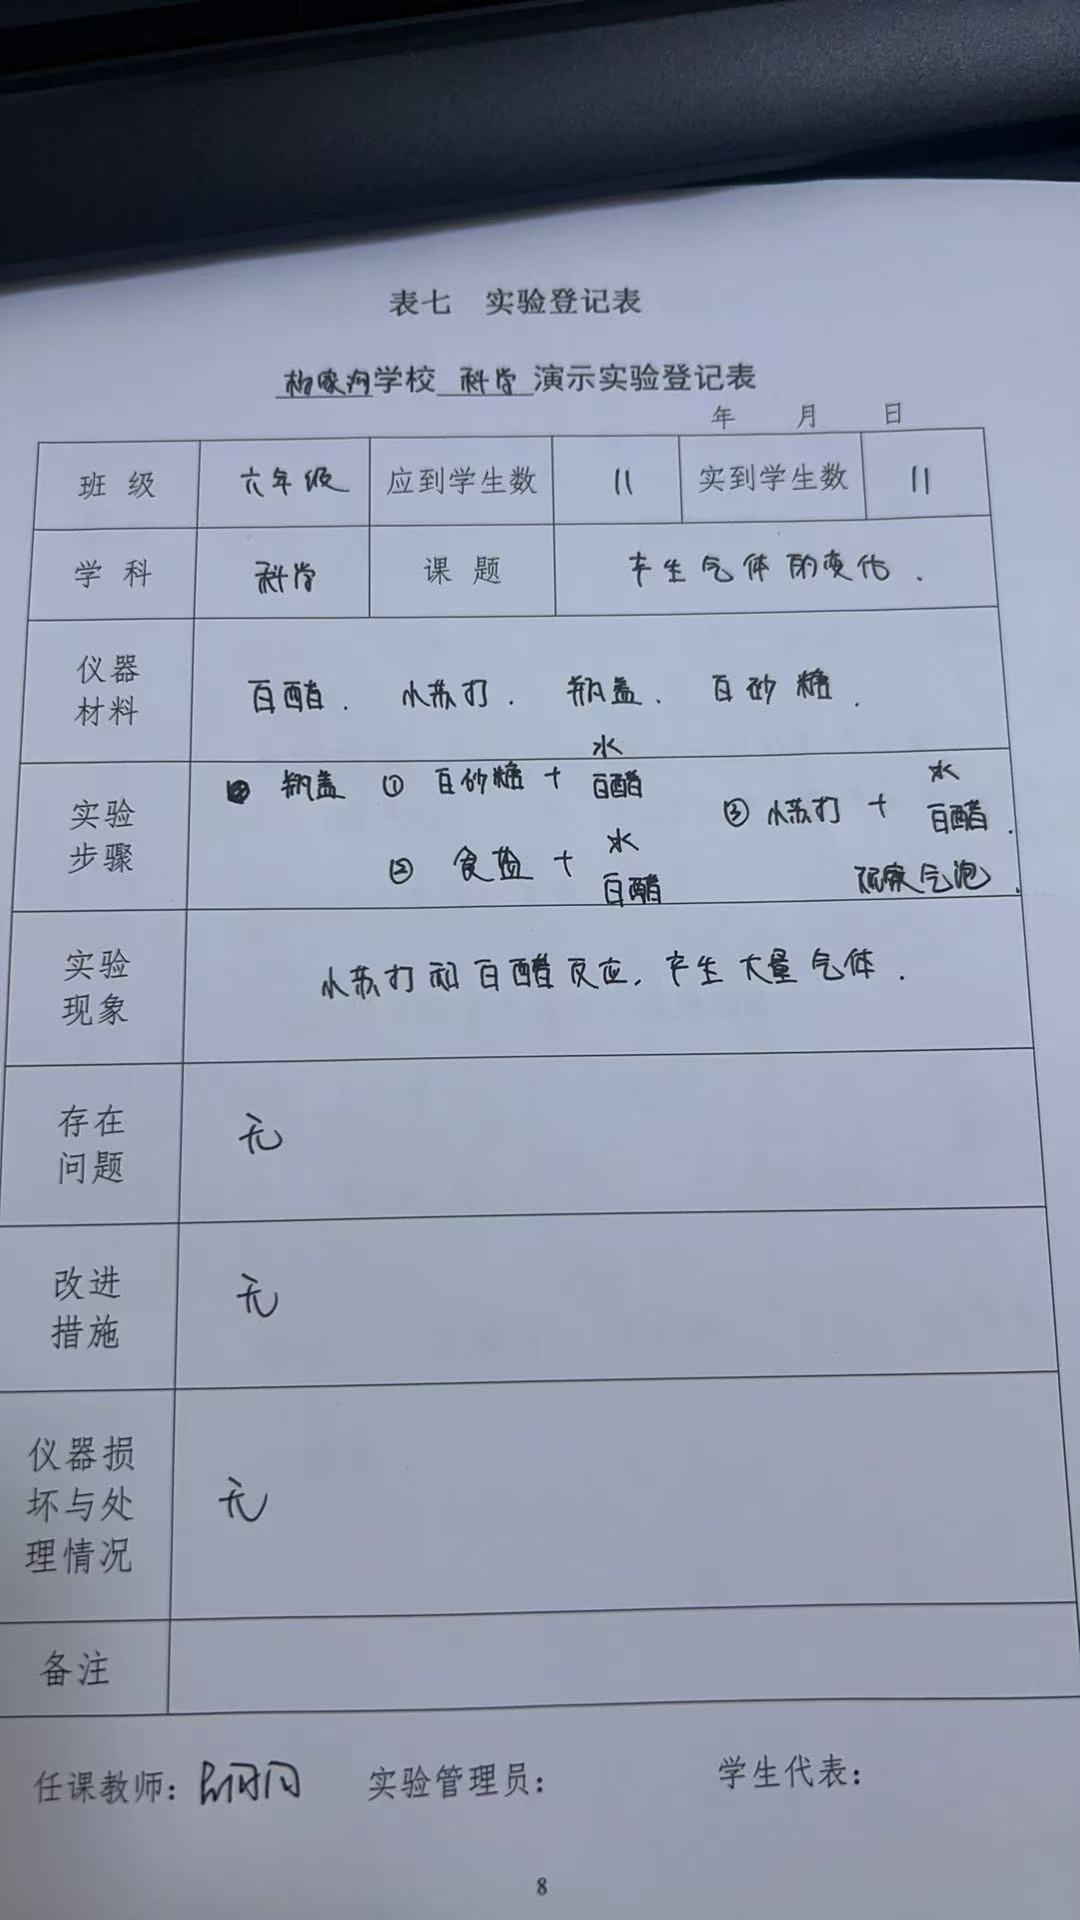 表七 实验登记表
杨家沟学校 科学 演示实验登记表
年 月 日
班 级 六年级 应到学生数 11 实到学生数 11
学 科 科学 课 题 产生气体的变化.
仪器
材料
白醋. 小苏打. 瓶盖. 白砂糖.
实验
步骤
瓶盖 ① 白砂糖 + 水 白醋
② 食盐 + 水 白醋
③ 小苏打 + 水 白醋.
观察气泡.
实验
现象
小苏打和白醋反应, 产生大量气体.
存在
问题
无
改进
措施
无
仪器损
坏与处
理情况
无
备注
任课教师: 实验管理员: 学生代表:
8